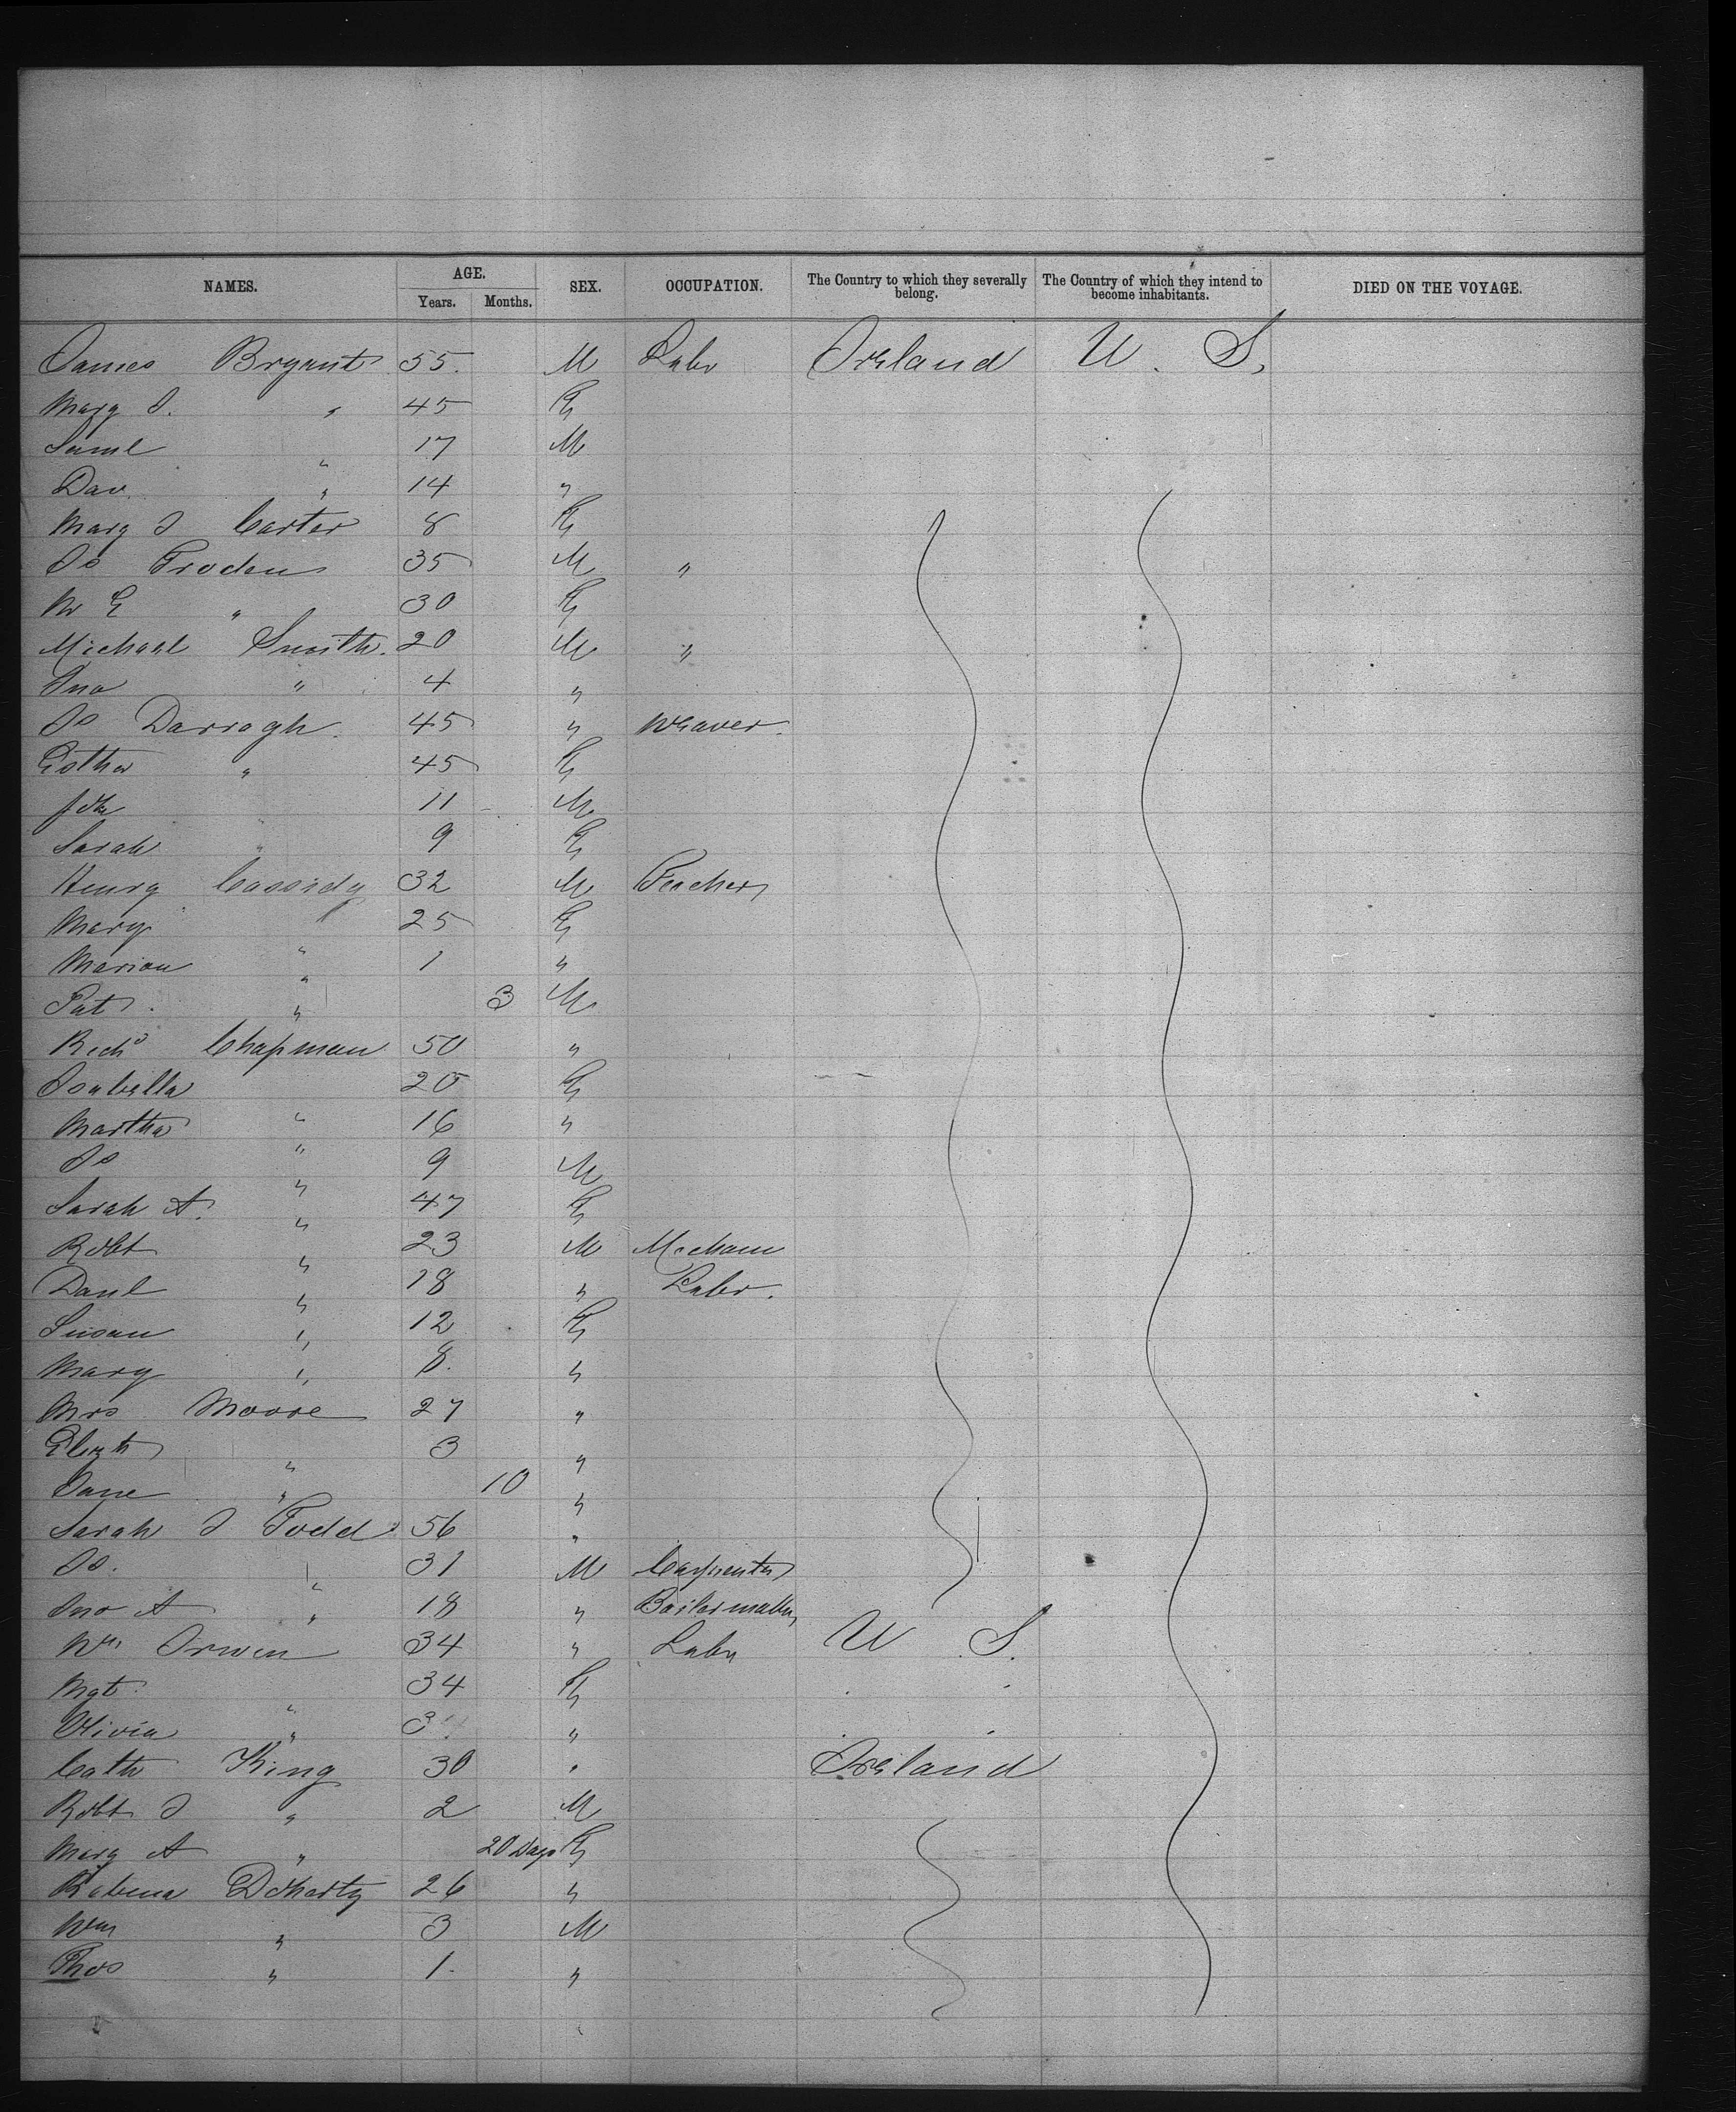 NAMES. AGE. SEX. OCCUPATION. The Country to which they severally belong. The Country of which they intend to become inhabitants. DIED ON THE VOYAGE.
Years. Months.
James Bryant 55. M Labr Ireland U. S.
Mary J. " 45 F
Saml " 17 M
Dav " 14 "
Mary J Carter 8 F
Js Froden 35 M "
M E " 30 F
Michael Smith. 20 M "
Jno " 4 "
Js Darragh. 45 " Weaver.
Esther " 45 F
Jos " 11 M
Sarah " 9 F
Henry Cassidy 32 M Teacher
Mary " 25 F
Marion " 1 "
Pat. " 3 M
Richd Chapman 50 "
Isabella " 20 F
Martha " 16 "
Js " 9 M
Sarah A. " 47 F
Robt " 23 M Mechan
Danl " 18 " Labr.
Susan " 12 F
Mary " 8. "
Mrs Moore 27 "
Elizth " 3 "
Jane " 10 "
Sarah J Todd 56 "
Js. " 31 M Carpenter
Jno A " 18 " Boilermaker
Wm Irwin 34 " Labr U S.
Mgt " 34 F
Olivia " 3 "
Cath King 30 " Ireland
Robt J " 2 M
Mary A " 20 Days F
Robena Doherty 26 "
Wm " 3 M
Thos " 1. "